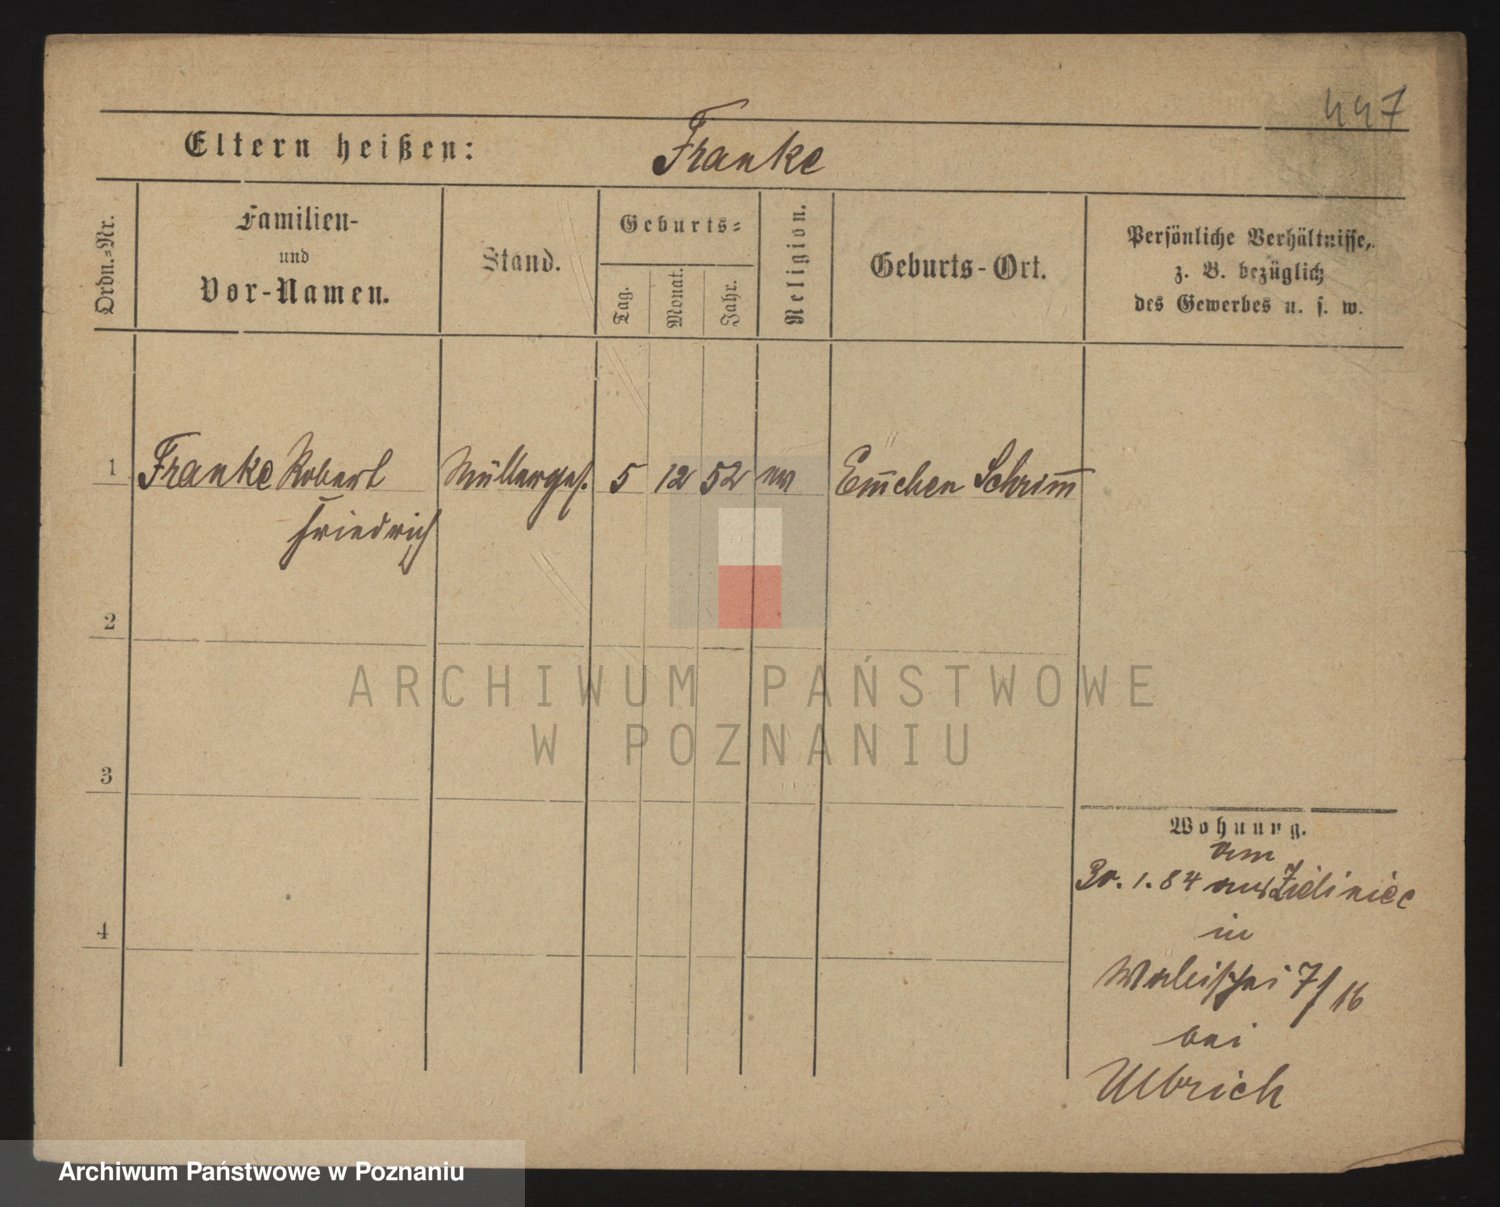 447
Eltern heißen: Franke
Ordn.-Nr.
Familien-
und
Vor-Namen.
Stand.
Geburts-
Tag.
Monat.
Jahr.
Religion.
Geburts-Ort.
Persönliche Verhältnisse,
z. B. bezüglich
des Gewerbes u. s. w.
1 Franke Robert Müllerges. 5 12 52 ev Em̅chen Schrim̅
Friedrich
2
3
4
Wohnung.
vom
30.1.84 aus Zieliniec
in
Wallischei 7/16
bei
Ulbrich
ARCHIWUM PAŃSTWOWE
W POZNANIU
Archiwum Państwowe w Poznaniu